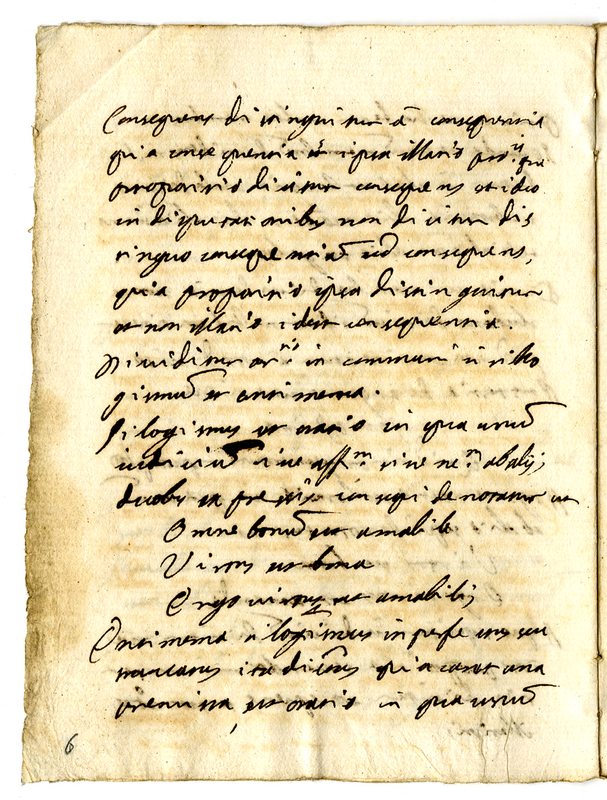 Consequens distinguitur a consequentia
quia consequentia est ipsa illatio
propositio dicitur consequens et ideo
in disputationibus non dicitur dis
tinguo consequentiã sed consequens,
quia propositio ipsa distinguitur
et non illatio idest consequentia.
Dividitur in communi in sillo
gismũ et antimema.
Silogismus est oratio in qua unũ
iudiciũ sive aff.m sive ne.m ab alijs
duobus consequi denotatur ut
Omne bonũ est amabile
Virtus est bona
Ergo virtus est amabilis
Entimema silogismus imperfectus seu
truncatus ita dictus quia caret una
premissa, est oratio in qua unũ
6